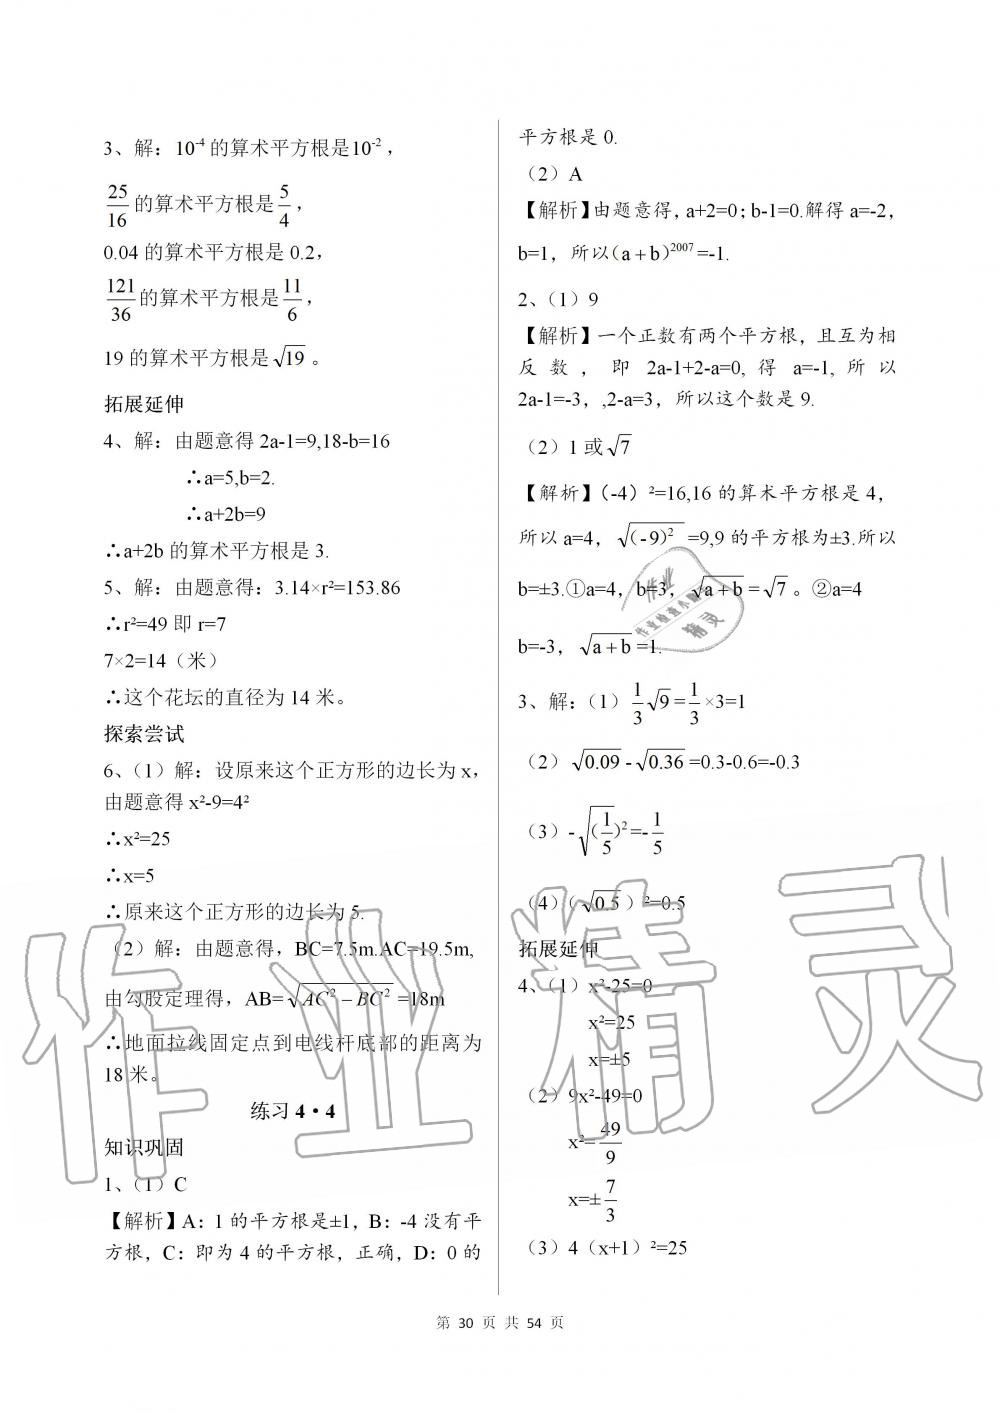 3、解：10⁻⁴ 的算术平方根是10⁻²，
25/16 的算术平方根是 5/4，
0.04 的算术平方根是 0.2，
121/36 的算术平方根是 11/6，
19 的算术平方根是√19 。
拓展延伸
4、解：由题意得 2a-1=9,18-b=16
∴a=5,b=2.
∴a+2b=9
∴a+2b 的算术平方根是 3.
5、解：由题意得：3.14×r²=153.86
∴r²=49 即 r=7
7×2=14（米）
∴这个花坛的直径为 14 米。
探索尝试
6、（1）解：设原来这个正方形的边长为 x，
由题意得 x²-9=4²
∴x²=25
∴x=5
∴原来这个正方形的边长为 5.
（2）解：由题意得，BC=7.5m.AC=19.5m,
由勾股定理得，AB=√(AC²－BC²) =18m
∴地面拉线固定点到电线杆底部的距离为
18 米。
练习 4·4
知识巩固
1、（1）C
【解析】A：1 的平方根是±1，B：-4 没有平
方根，C：即为 4 的平方根，正确，D：0 的
平方根是 0.
（2）A
【解析】由题意得，a+2=0；b-1=0.解得 a=-2，
b=1，所以(a + b)²⁰⁰⁷ =-1.
2、（1）9
【解析】一个正数有两个平方根，且互为相
反数，即 2a-1+2-a=0, 得 a=-1, 所以
2a-1=-3，,2-a=3，所以这个数是 9.
（2）1 或√7
【解析】（-4）²=16,16 的算术平方根是 4，
所以 a=4，√(-9)² =9,9 的平方根为±3.所以
b=±3.①a=4，b=3，√(a + b) = √7 。②a=4
b=-3，√(a + b) =1.
3、解：（1）1/3 √9 = 1/3 ×3=1
（2）√0.09 - √0.36 =0.3-0.6=-0.3
（3）-√(1/5)² =- 1/5
（4）（√0.5）²=0.5
拓展延伸
4、（1）x²-25=0
x²=25
x=±5
（2）9x²-49=0
x²= 49/9
x=± 7/3
（3）4（x+1）²=25
第 30 页 共 54 页
作业精灵
作业
作业检查小助手
精灵